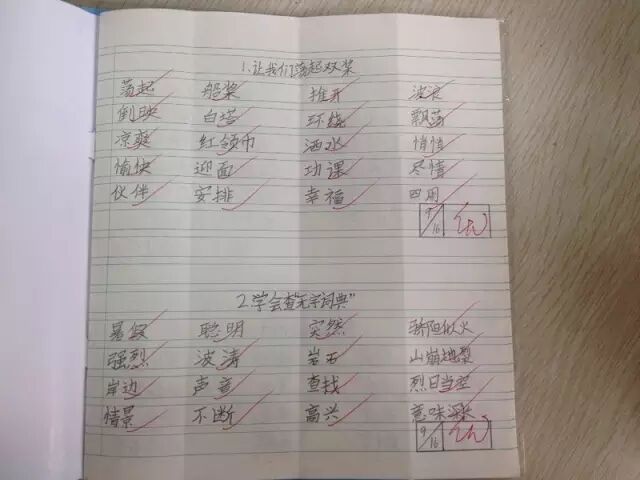 1.让我们荡起双桨
荡起 船桨 推开 波浪
倒映 白塔 环绕 飘荡
凉爽 红领巾 洒水 悄悄
愉快 迎面 功课 尽情
伙伴 安排 幸福
9/16 优
2.学会查"无字词典"
暑假 聪明 突然 骄阳似火
强烈 波涛 岩石 山崩地裂
岸边 声音 查找 烈日当空
情景 不断 高兴 意味深长
9/16 优